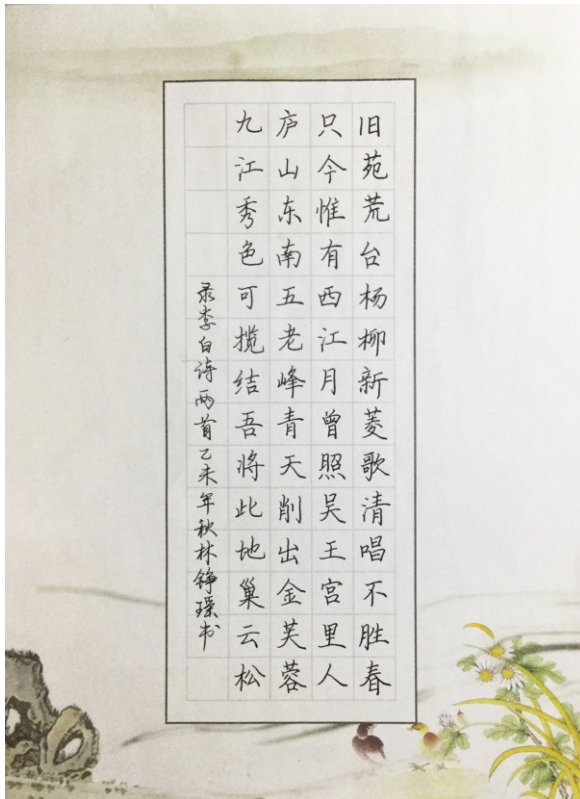 旧苑荒台杨柳新菱歌清唱不胜春
只今惟有西江月曾照吴王宫里人
庐山东南五老峰青天削出金芙蓉
九江秀色可揽结吾将此地巢云松
录李白诗两首乙未年秋林铮璟书